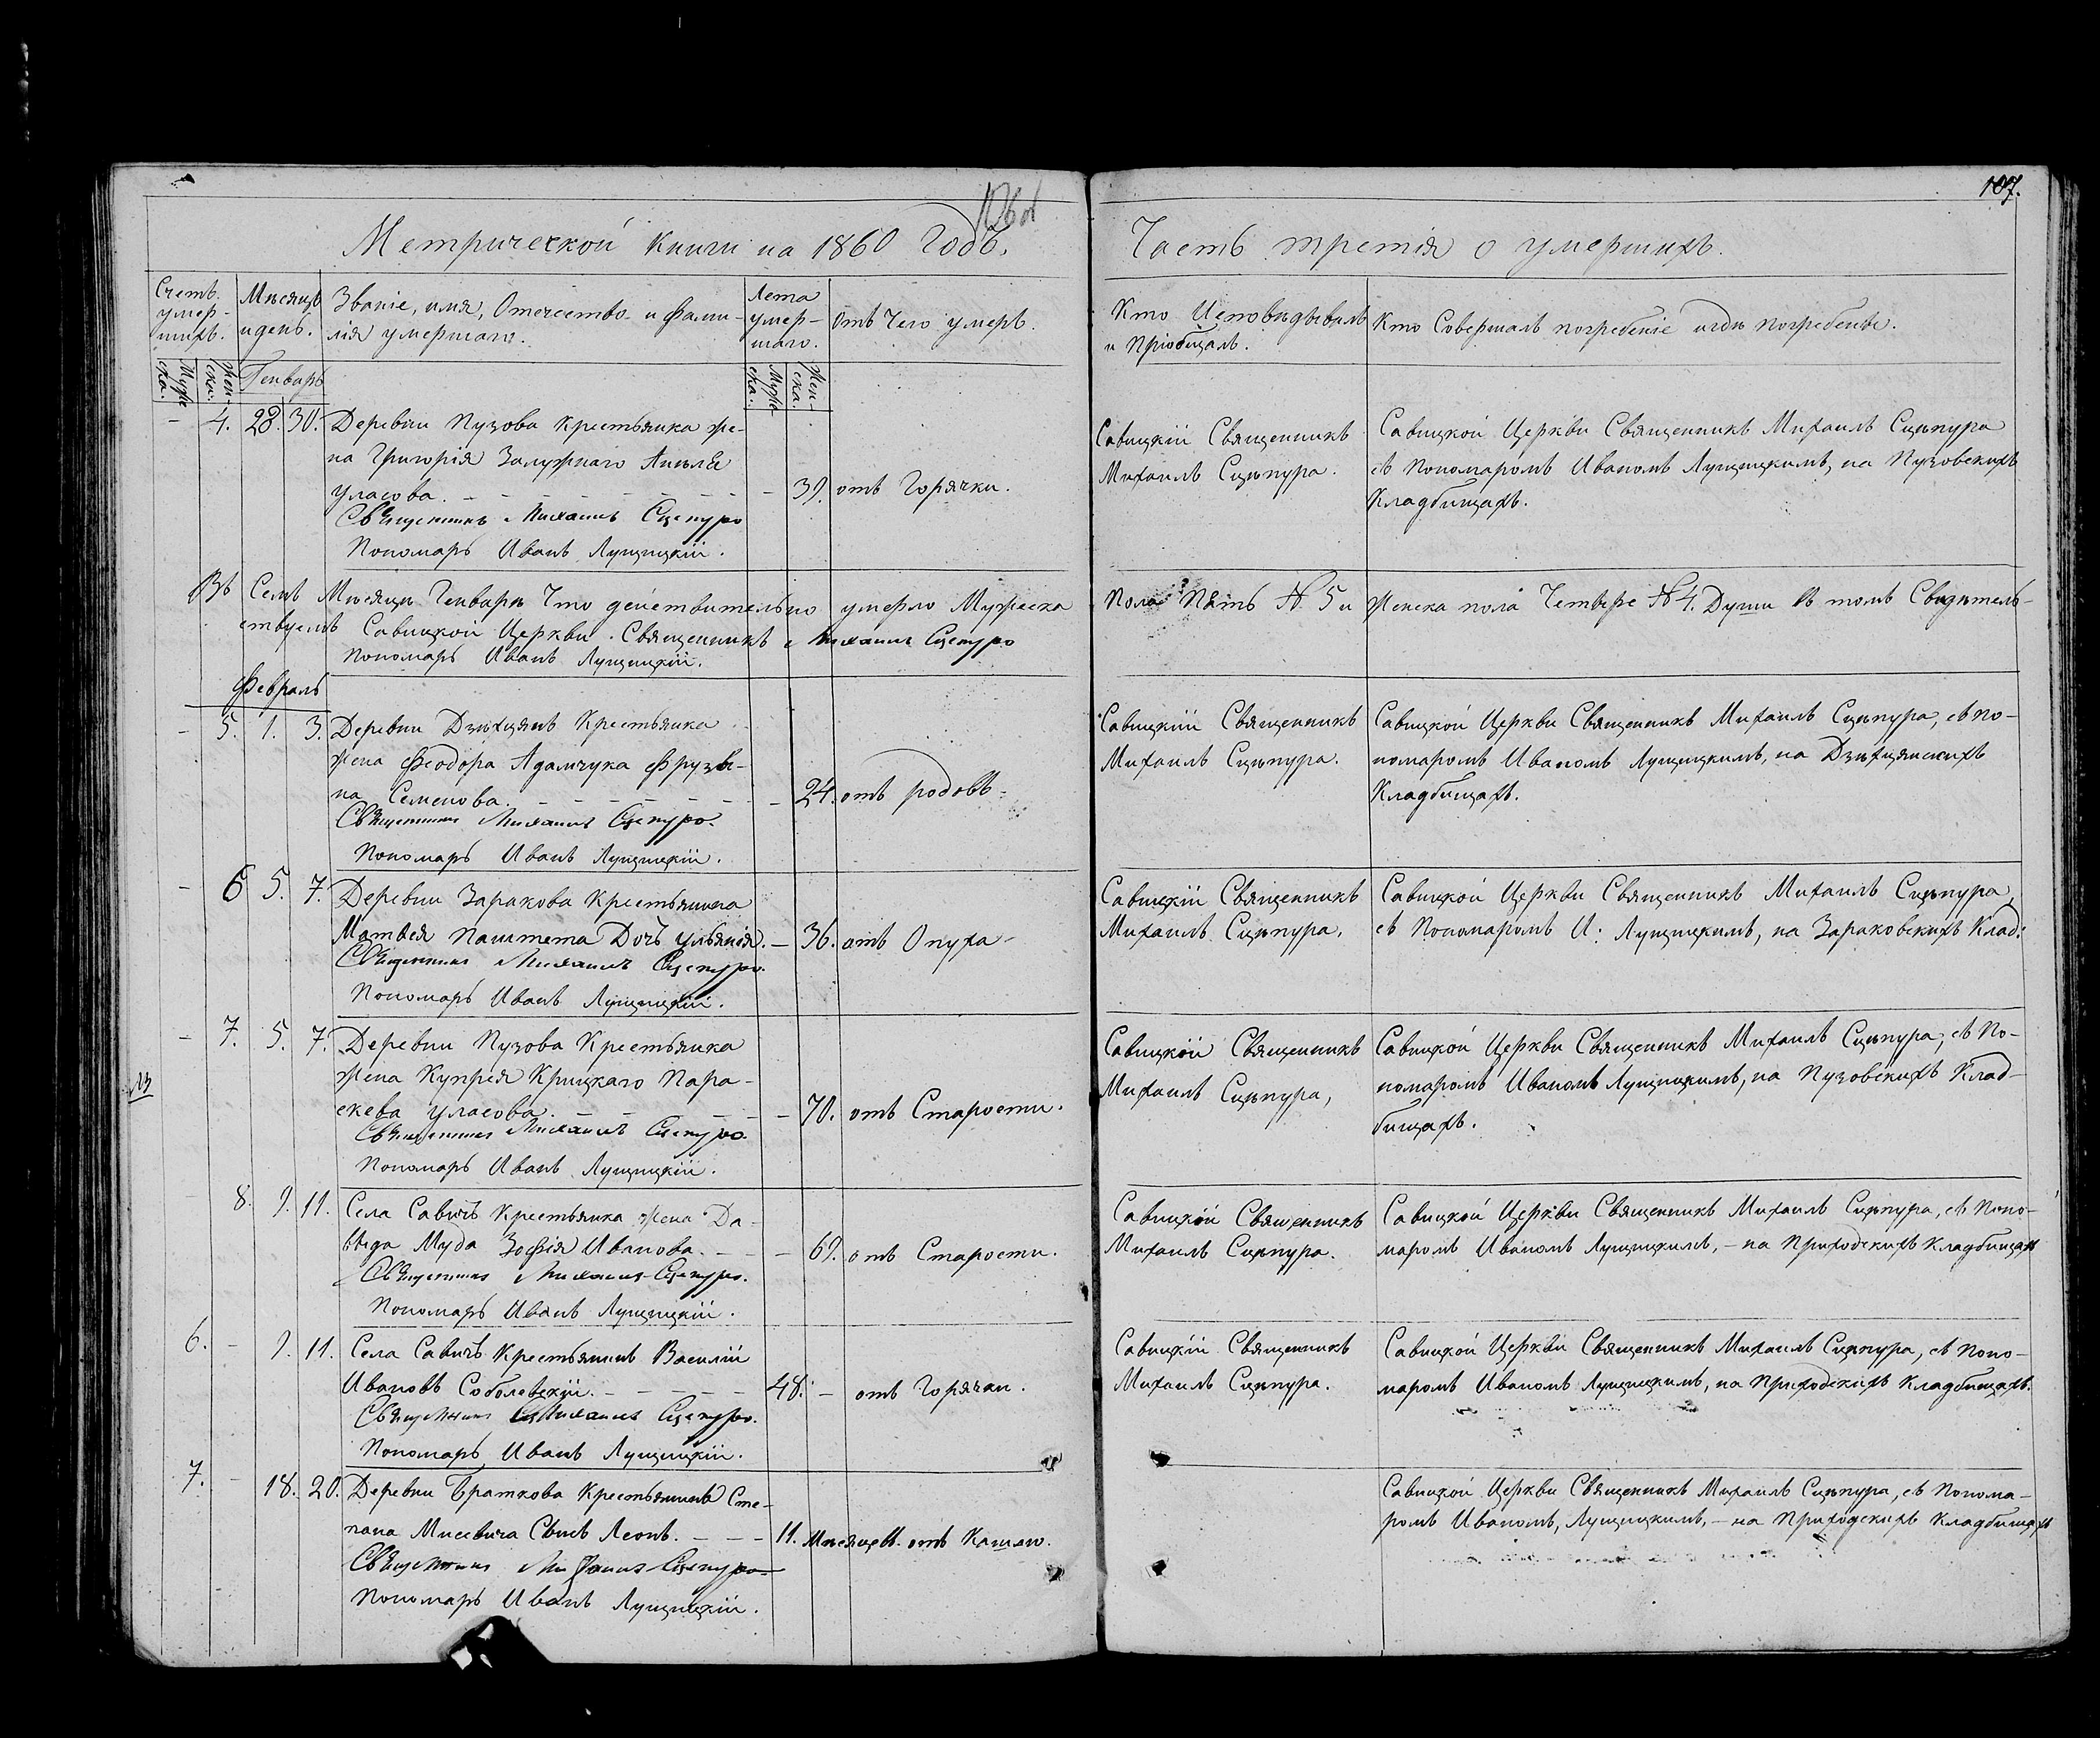 107.
Метрической Книги на 1860 Годъ,
Часть третія о умершихъ.
Счетъ умер-
шихъ.
Мѣсяцъ
и день.
Званіе, имя, Отечество и фами-
лія умершаго.
Лета
умер-
шаго.
Отъ Чего умеръ.
Кто Исповѣдывалъ
и Пріобщалъ.
Кто Совершалъ погребеніе и гдѣ погребенъ.
Муже
ска.
Жен-
ска.
Генварь
Муже
ска.
Жен-
ска.
- 4. 28. 30. Деревни Пузова Крестьянка же-
на Григорія Залужнаго Анѣля
Уласова. - 39. отъ Горячки.
Священникъ Михаилъ Сцепуро
Пономарь Иванъ Лущицкій.
Савицкій Священникъ
Михаилъ Сцѣпура.
Савицкой Церкви Священникъ Михаилъ Сцѣпура
съ Пономаромъ Иваномъ Лущицкимъ, на Пузовскихъ
Кладбищахъ.
Въ Семъ Мѣсяцѣ Генварѣ Что действительно умерло Мужеска Пола Пять № 5 и Женска пола Четвере № 4. Души въ томъ Свидѣтель-
ствуемъ Савицкой Церкви Священникъ Михаилъ Сцепуро
Пономарь Иванъ Лущицкій.
Февраль
- 5. 1. 3. Деревни Дзѣхцянъ Крестьянка
жена Феодора Адамчука Фрузы-
на Семенова. - 24. отъ родовъ -
Священникъ Михаилъ Сцепуро.
Пономарь Иванъ Лущицкій.
Савицкій Священникъ
Михаилъ Сцѣпура.
Савицкой Церкви Священникъ Михаилъ Сцѣпура, съ По-
номаромъ Иваномъ Лущицкимъ, на Дзѣхцянскихъ
Кладбищахъ.
- 6 5. 7. Деревни Заракова Крестьянина
Матвея Паштета Дочъ Ульянія. - 36. отъ Опуха -
Священникъ Михаилъ Сцепуро.
Пономарь Иванъ Лущицкій.
Савицкій Священникъ
Михаилъ Сцѣпура,
Савицкой Церкви Священникъ Михаилъ Сцѣпура,
съ Пономаромъ И: Лущицкимъ, на Зараковскихъ Клад:
- 7. 5. 7. Деревни Пузова Крестьянка
жена Купрея Крицкаго Пара-
скева Уласова. - 70. отъ Старости.
Священникъ Михаилъ Сцепуро.
Пономарь Иванъ Лущицкій.
Савицкій Священникъ
Михаилъ Сцѣпура,
Савицкой Церкви Священникъ Михаилъ Сцѣпура, съ По-
номаромъ Иваномъ Лущицкимъ, на Пузовскихъ Клад-
бищахъ.
- 8. 9. 11. Села Савичъ Крестьянка жена Да-
выда Муда Зофія Иванова. - 69. отъ Старости.
Священникъ Михаилъ Сцепуро.
Пономарь Иванъ Лущицкій.
Савицкій Священникъ
Михаилъ Сцѣпура.
Савицкой Церкви Священникъ Михаилъ Сцѣпура, съ Поно-
маромъ Иваномъ Лущицкимъ, - на Приходскихъ Кладбищахъ
6. - 9. 11. Села Савичъ Крестьянинъ Василій
Ивановъ Соболевскій. 48. - отъ Горячки.
Священникъ Михаилъ Сцепуро.
Пономарь Иванъ Лущицкій.
Савицкій Священникъ
Михаилъ Сцѣпура.
Савицкой Церкви Священникъ Михаилъ Сцѣпура, съ Поно-
маромъ Иваномъ Лущицкимъ, на Приходскихъ Кладбищахъ.
7. - 18. 20. Деревни Браткова Крестьянинъ Сте-
пана Мисевича Сынъ Леонъ. - 11. Мѣсяцевъ отъ Кашлю.
Священникъ Михаилъ Сцепуро
Пономарь Иванъ Лущицкій.
Савицкой Церкви Священникъ Михаилъ Сцѣпура, съ Понома-
ромъ Иваномъ, Лущицкимъ, - на Приходскихъ Кладбищахъ